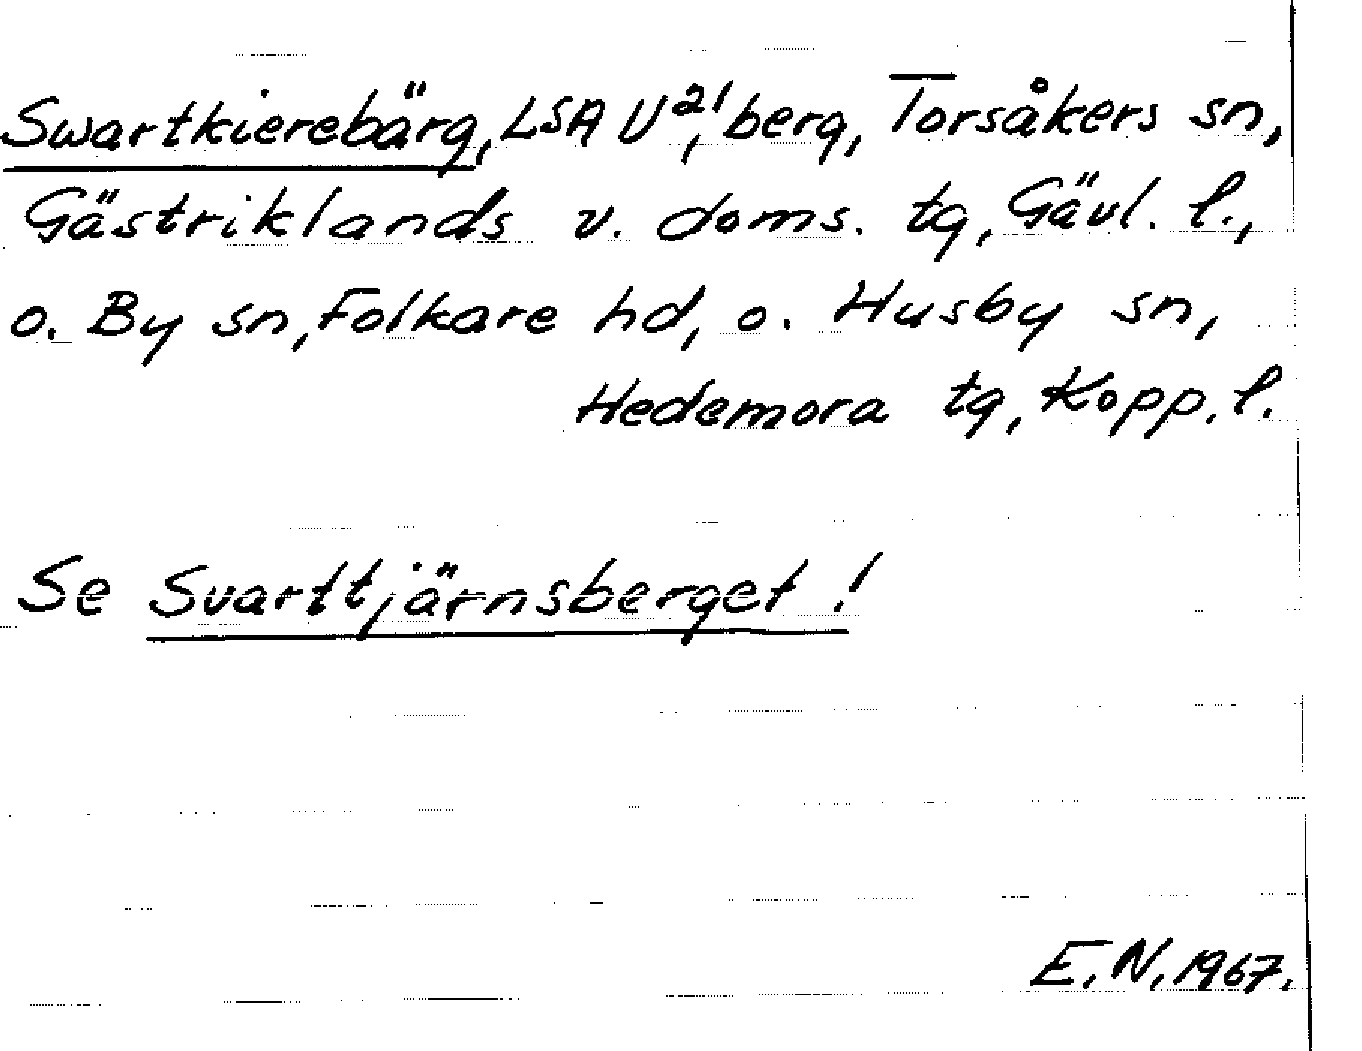 Swartkierebärg, LSA U²¹, berg, Torsåkers sn,
Gästriklands v. doms. tg, Gävl. l.,
o. By sn, Folkare hd, o. Husby sn,
Hedemora tg, Kopp. l.
Se Svarttjärnsberget!
E.N. 1967.